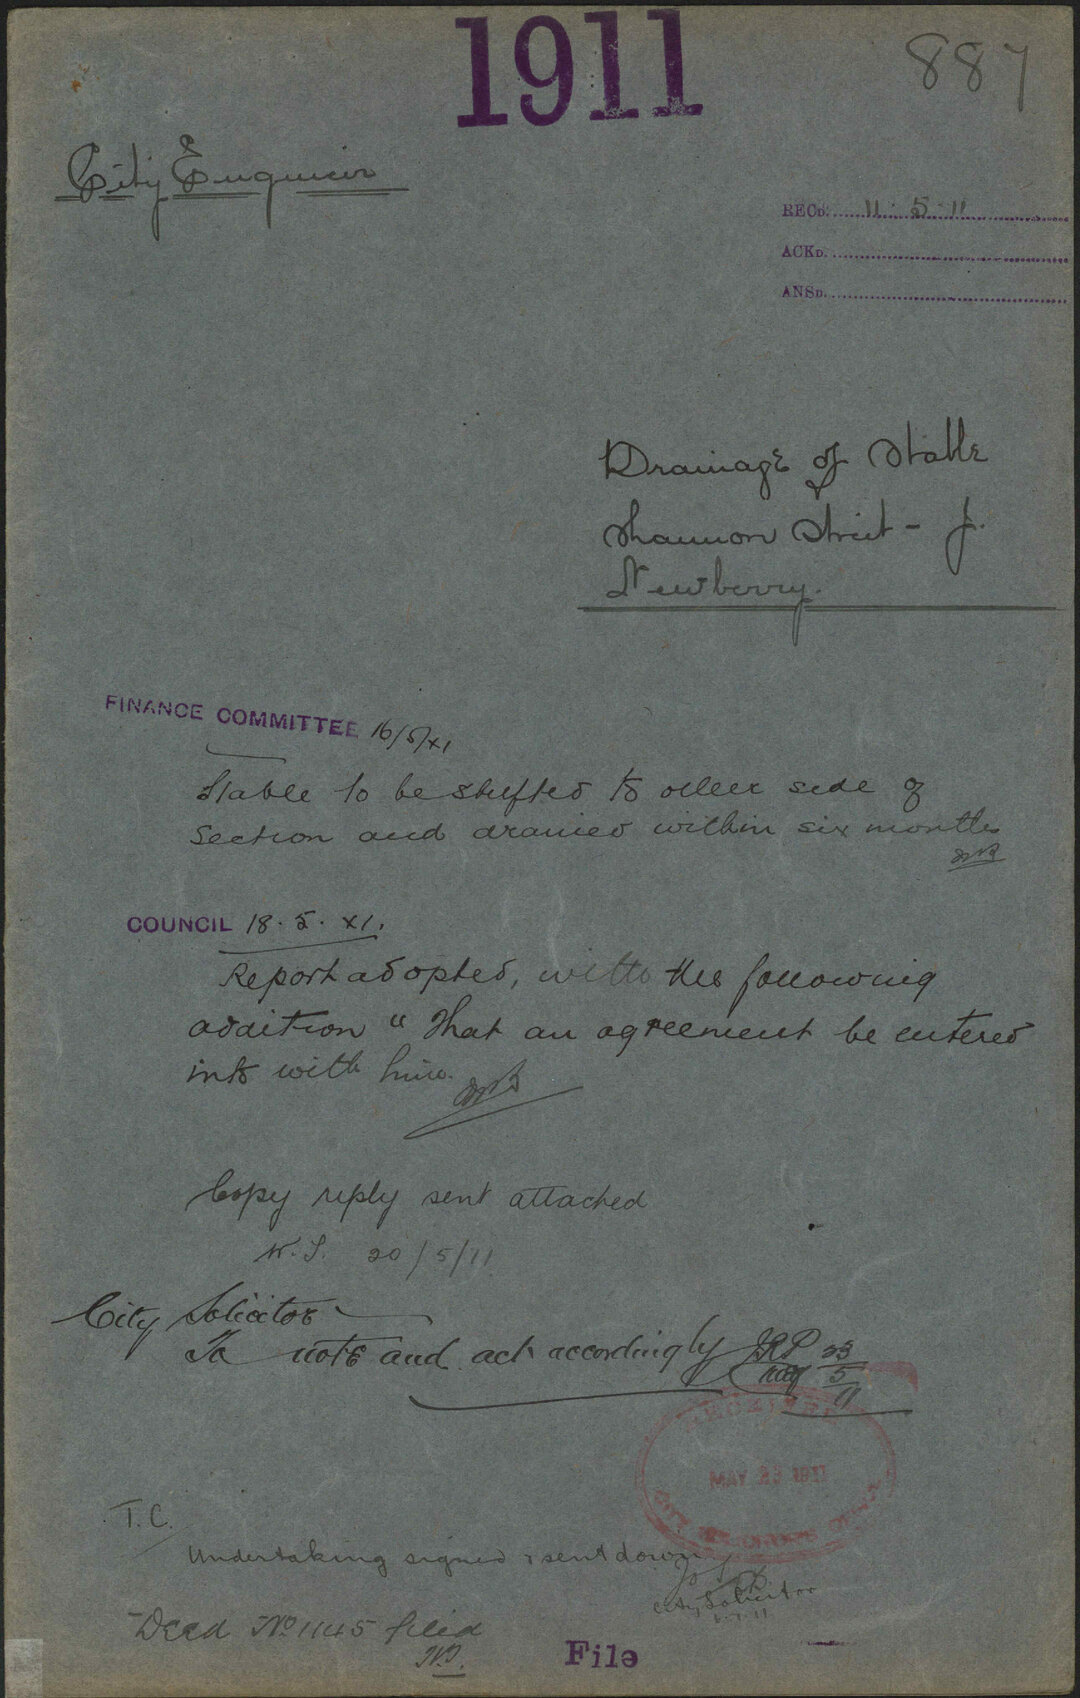 1911
887
City Engineer
RECD. 11.5.11
ACKD.
ANSD.
Drainage of Stable
Shannon Street - J.
Newberry.
FINANCE COMMITTEE 16/5/XI
Stable to be shifted to other side of
Section and drained within six months
COUNCIL 18.5.XI.
Report adopted, with the following
addition "That an agreement be entered
into with him.
Copy reply sent attached
20/5/11
City Solicitor
To note and act accordingly JRP 23
5
11
MAY 1911
T.C.
Undertaking signed & sent down
City Solicitor
Deed No 1145 filed
File